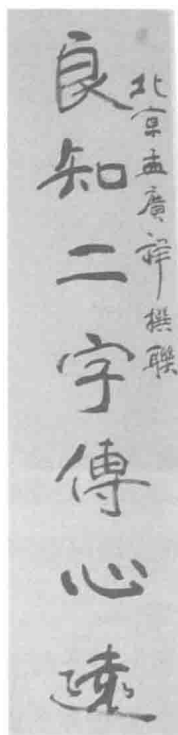 北京孟廣祥撰聯
良知二字傳心遠